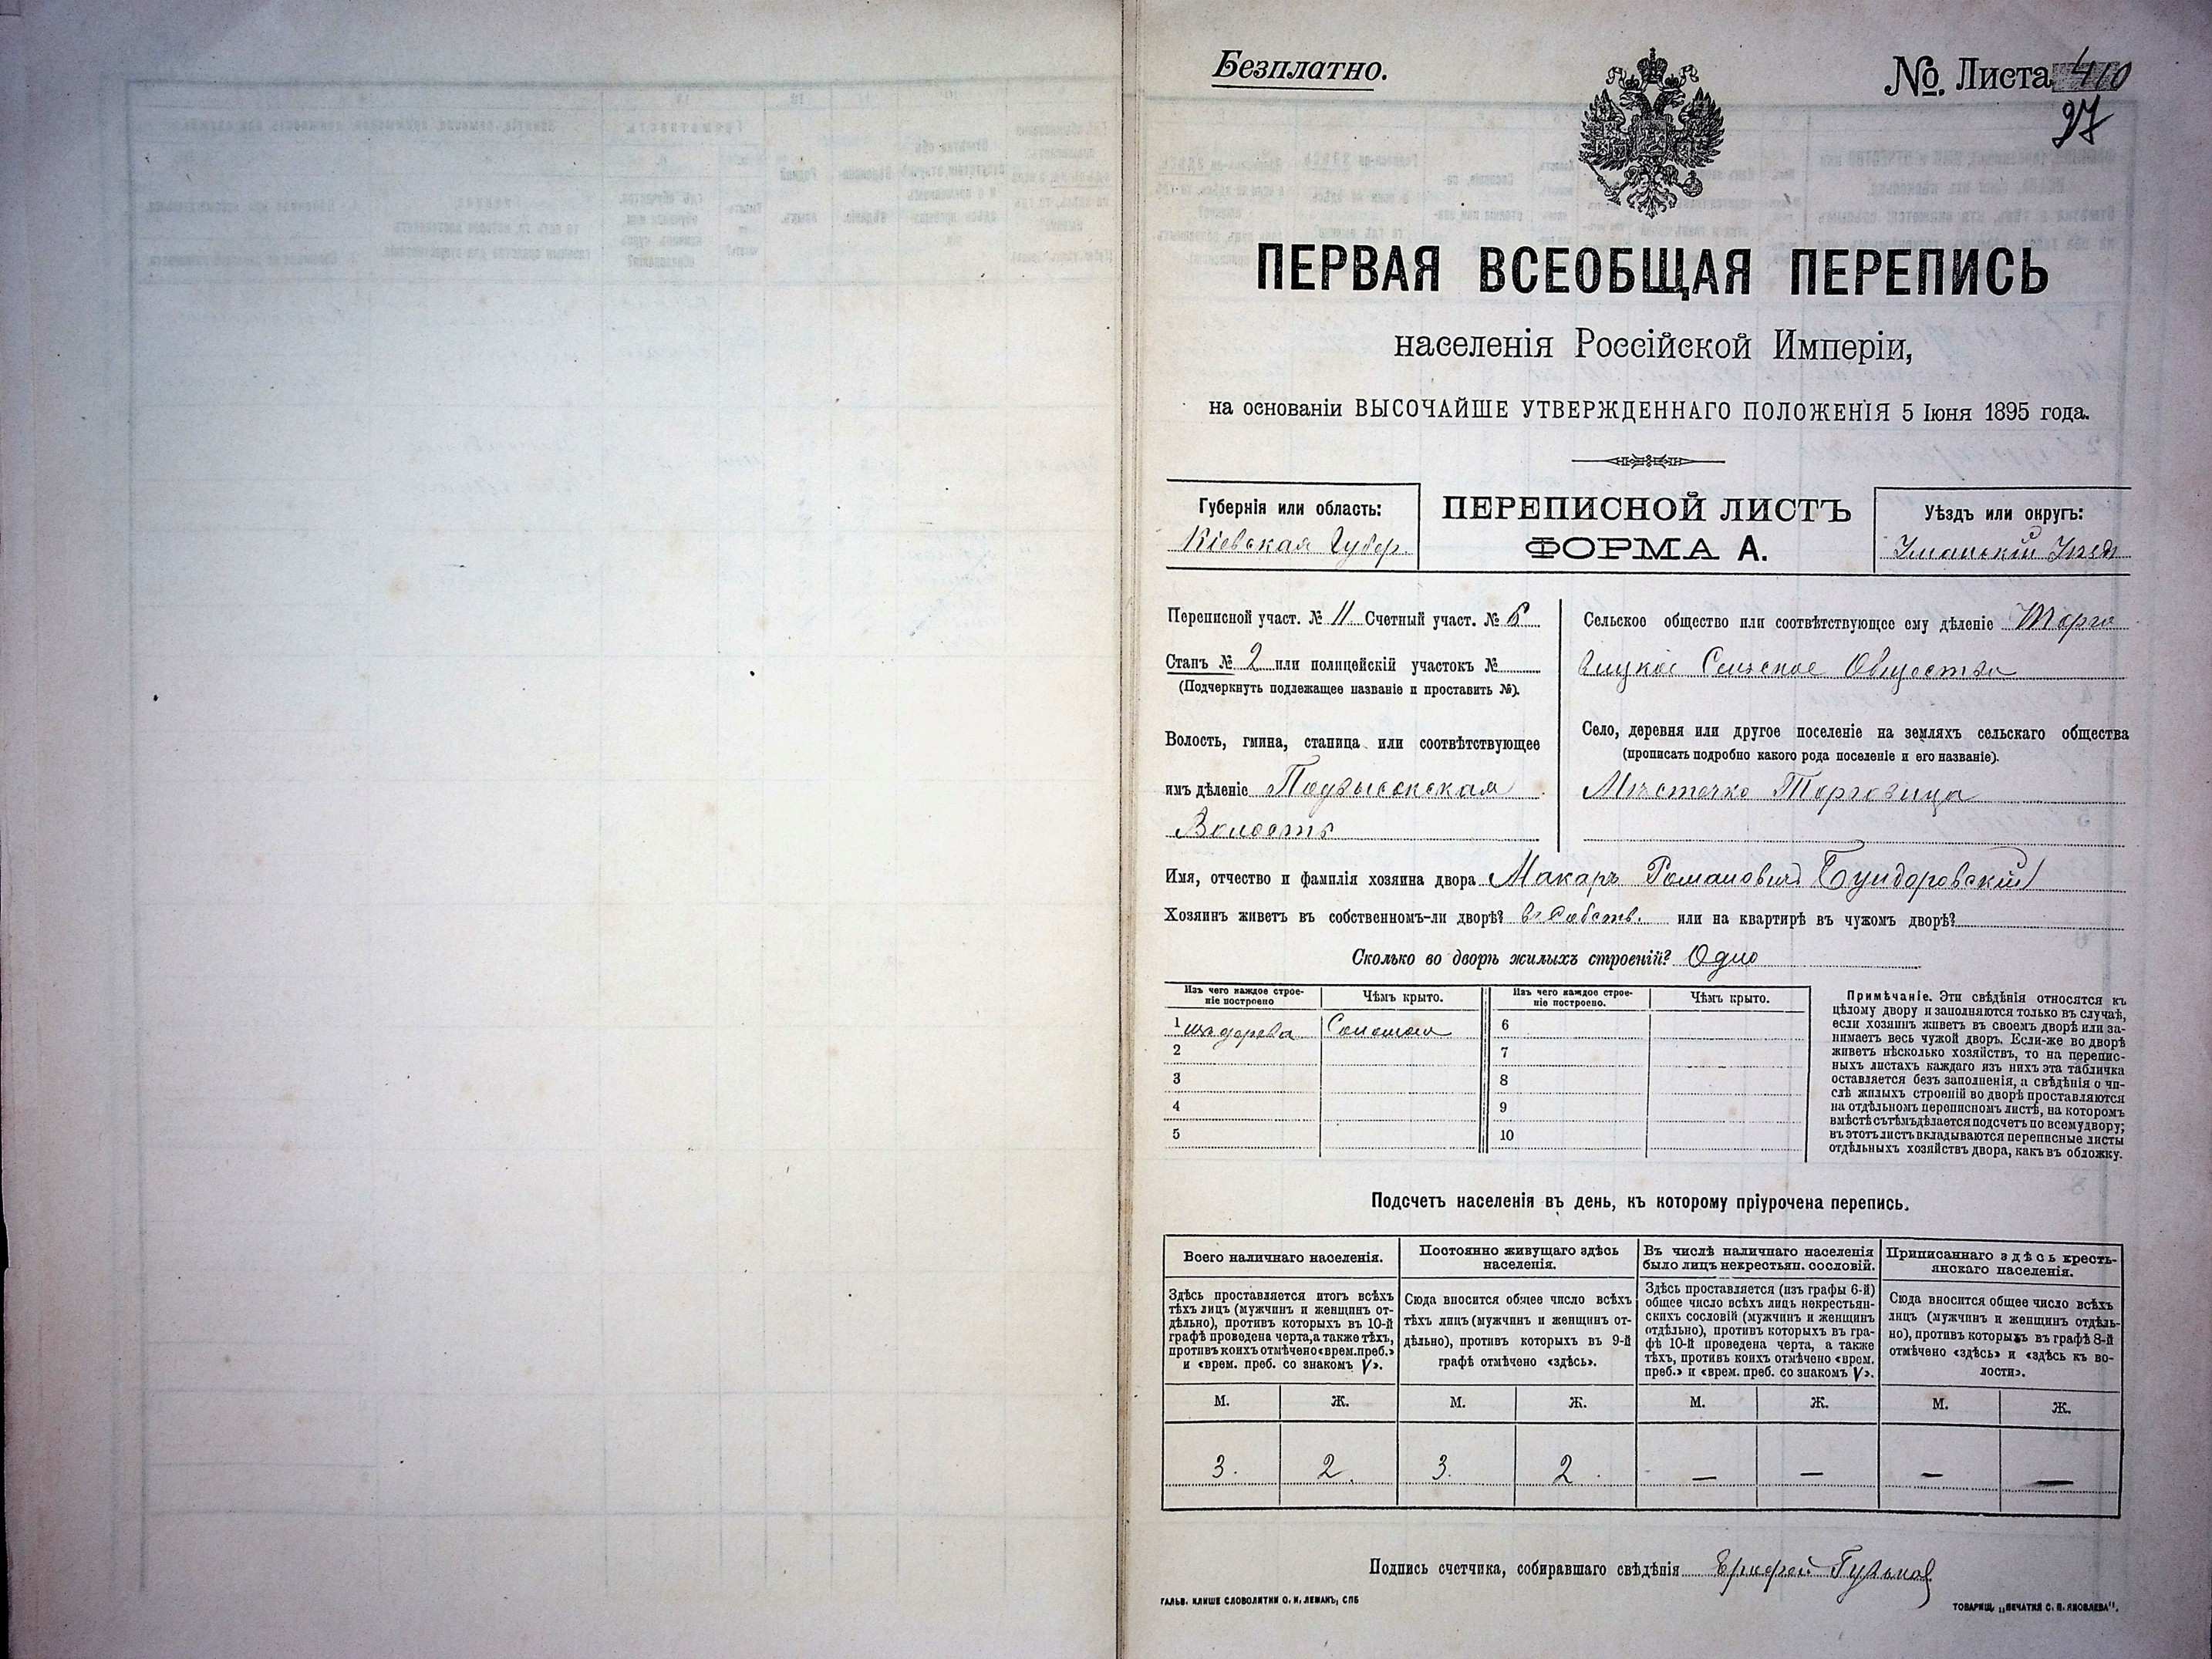 Безплатно.
№. Листа 410
27
ПЕРВАЯ ВСЕОБЩАЯ ПЕРЕПИСЬ
населенія Россійской Имперіи,
на основаніи ВЫСОЧАЙШЕ УТВЕРЖДЕННАГО ПОЛОЖЕНІЯ 5 Іюня 1895 года.
Губернія или область:
Кіевская Губер.
ПЕРЕПИСНОЙ ЛИСТЪ
ФОРМА А.
Уѣздъ или округъ:
Уманскій Уѣздъ
Переписной участ. № 11 Счетный участ. № 6
Станъ № 2 или полицейскій участокъ №
(Подчеркнуть подлежащее названіе и проставить №).
Волость, гмина, станица или соотвѣтствующее
имъ дѣленіе Подвысокская
Волость
Сельское общество или соотвѣтствующее ему дѣленіе Торго
вицкое Сельское Общество
Село, деревня или другое поселеніе на земляхъ сельскаго общества
(прописать подробно какого рода поселеніе и его названіе).
Мѣстечко Торговица
Имя, отчество и фамилія хозяина двора Макаръ Романовичъ Бундоровскій
Хозяинъ живетъ въ собственномъ-ли дворѣ? въ собств. или на квартирѣ въ чужомъ дворѣ?
Сколько во дворѣ жилыхъ строеній? Одно
Изъ чего каждое строе-
ніе построено
Чѣмъ крыто.
Изъ чего каждое строе-
ніе построено.
Чѣмъ крыто.
1 изъ дерева Соломою 6
2 7
3 8
4 9
5 10
Примѣчаніе. Эти свѣдѣнія относятся къ
цѣлому двору и заполняются только въ случаѣ,
если хозяинъ живетъ въ своемъ дворѣ или за-
нимаетъ весь чужой дворъ. Если-же во дворѣ
живетъ нѣсколько хозяйствъ, то на перепис-
ныхъ листахъ каждаго изъ нихъ эта табличка
оставляется безъ заполненія, а свѣдѣнія о чи-
слѣ жилыхъ строеній во дворѣ проставляются
на отдѣльномъ переписномъ листѣ, на которомъ
вмѣстѣ съ тѣмъ дѣлается подсчетъ по всему двору;
въ этотъ листъ вкладываются переписные листы
отдѣльныхъ хозяйствъ двора, какъ въ обложку.
Подсчетъ населенія въ день, къ которому пріурочена перепись.
Всего наличнаго населенія.
Здѣсь проставляется итогъ всѣхъ
тѣхъ лицъ (мужчинъ и женщинъ от-
дѣльно), противъ которыхъ въ 10-й
графѣ проведена черта, а также тѣхъ,
противъ коихъ отмѣчено «врем. преб.»
и «врем. преб. со знакомъ V».
Постоянно живущаго здѣсь
населенія.
Сюда вносится общее число всѣхъ
тѣхъ лицъ (мужчинъ и женщинъ от-
дѣльно), противъ которыхъ въ 9-й
графѣ отмѣчено «здѣсь».
Въ числѣ наличнаго населенія
было лицъ некрестьян. сословій.
Здѣсь проставляется (изъ графы 6-й)
общее число всѣхъ лицъ некрестьян-
скихъ сословій (мужчинъ и женщинъ
отдѣльно), противъ которыхъ въ гра-
фѣ 10-й проведена черта, а также
тѣхъ, противъ коихъ отмѣчено «врем.
преб.» и «врем. преб. со знакомъ V».
Приписаннаго здѣсь кресть-
янскаго населенія.
Сюда вносится общее число всѣхъ
лицъ (мужчинъ и женщинъ отдѣль-
но), противъ которыхъ въ графѣ 8-й
отмѣчено «здѣсь» и «здѣсь къ во-
лости».
М. Ж. М. Ж. М. Ж. М. Ж.
3. 2. 3. 2. — — — —
Подпись счетчика, собиравшаго свѣдѣнія
ГАЛЬВ. КЛИШЕ СЛОВОЛИТНИ О. И. ЛЕМАНЪ, СПБ
ТОВАРИЩ. „ПЕЧАТНЯ С. П. ЯКОВЛЕВА".